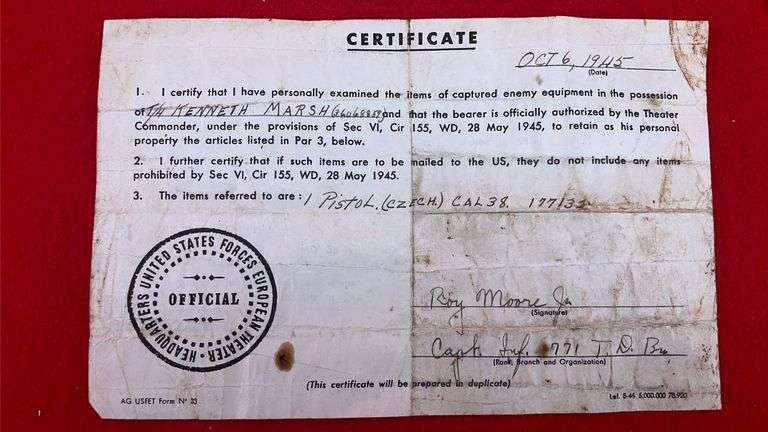 CERTIFICATE
OCT 6, 1945
(Date)
1. I certify that I have personally examined the items of captured enemy equipment in the possession
of T/4 KENNETH MARSH and that the bearer is officially authorized by the Theater
Commander, under the provisions of Sec VI, Cir 155, WD, 28 May 1945, to retain as his personal
property the articles listed in Par 3, below.
2. I further certify that if such items are to be mailed to the US, they do not include any items
prohibited by Sec VI, Cir 155, WD, 28 May 1945.
3. The items referred to are : 1 PISTOL. (CZECH.) CAL 38.
HEADQUARTERS UNITED STATES FORCES EUROPEAN THEATER
OFFICIAL
Roy Moore Jr
(Signature)
Capt. Inf. 771 T. D. Bn
(Rank, Branch and Organization)
(This certificate will be prepared in duplicate)
AG USFET Form Nº 33
5.000.000